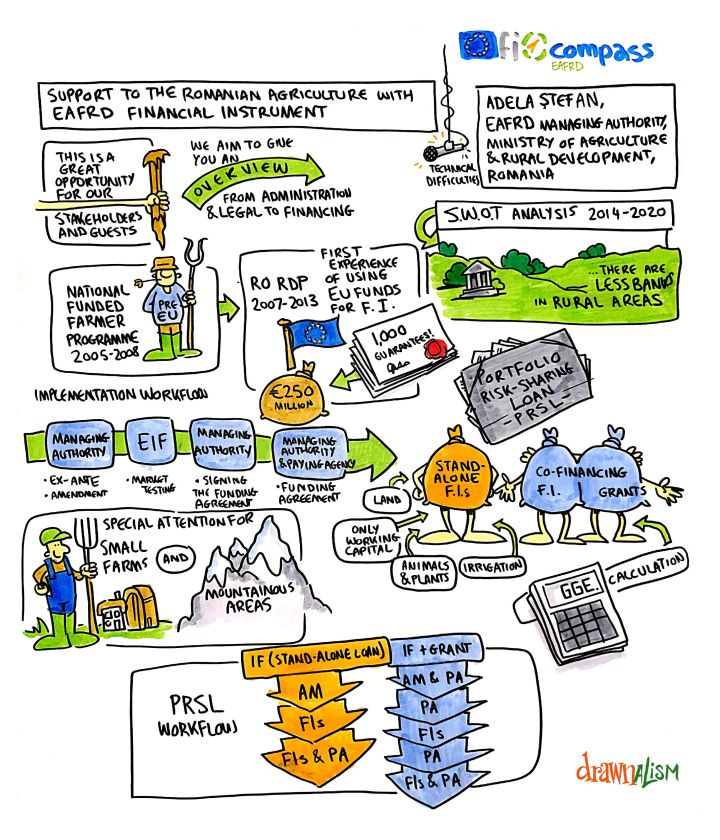 fi compass
EAFRD
SUPPORT TO THE ROMANIAN AGRICULTURE WITH
EAFRD FINANCIAL INSTRUMENT
ADELA ŞTEFAN,
EAFRD MANAGING AUTHORITY,
MINISTRY OF AGRICULTURE
& RURAL DEVELOPMENT,
ROMANIA
TECHNICAL
DIFFICULTIES
THIS IS A
GREAT
OPPORTUNITY
FOR OUR
STAKEHOLDERS
AND GUESTS
WE AIM TO GIVE
YOU AN
OVERVIEW
FROM ADMINISTRATION
& LEGAL TO FINANCING
S.W.O.T ANALYSIS 2014-2020
...THERE ARE
LESS BANKS
IN RURAL AREAS
NATIONAL
FUNDED
FARMER
PROGRAMME
2005-2008
PRE
EU
RO RDP
2007-2013
FIRST
EXPERIENCE
OF USING
EU FUNDS
FOR F.I.
1,000
GUARANTEES!
€250
MILLION
PORTFOLIO
RISK-SHARING
LOAN
-PRSL-
IMPLEMENTATION WORKFLOW
MANAGING
AUTHORITY
• EX-ANTE
• AMENDMENT
EIF
• MARKET
TESTING
MANAGING
AUTHORITY
• SIGNING
THE FUNDING
AGREEMENT
MANAGING
AUTHORITY
& PAYING AGENCY
• FUNDING
AGREEMENT
STAND-
ALONE
F.I.s
CO-FINANCING
F.I. GRANTS
LAND
ONLY
WORKING
CAPITAL
ANIMALS
& PLANTS
IRRIGATION
GGE.
CALCULATION
SPECIAL ATTENTION FOR
SMALL
FARMS
AND
MOUNTAINOUS
AREAS
PRSL
WORKFLOW
IF (STAND-ALONE LOAN)
AM
FIs
FIs & PA
IF + GRANT
AM & PA
PA
FIs
PA
FIs & PA
drawnALISM